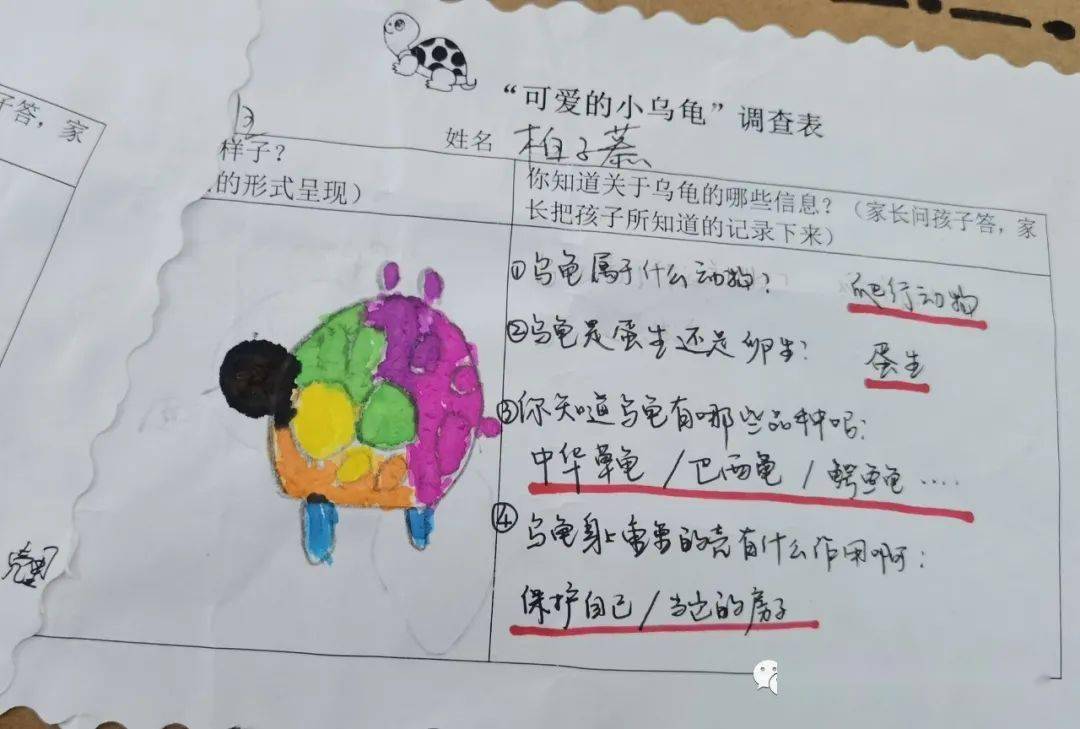 “可爱的小乌龟”调查表
姓名 柏子慕
子答，家
样子？
的形式呈现）
你知道关于乌龟的哪些信息？（家长问孩子答，家
长把孩子所知道的记录下来）
①乌龟属于什么动物？ 爬行动物
②乌龟是蛋生还是卵生？ 蛋生
③你知道乌龟有哪些品种吗：
中华草龟/巴西龟/鳄鱼龟....
④乌龟身上重重的壳有什么作用啊：
保护自己/当它的房子